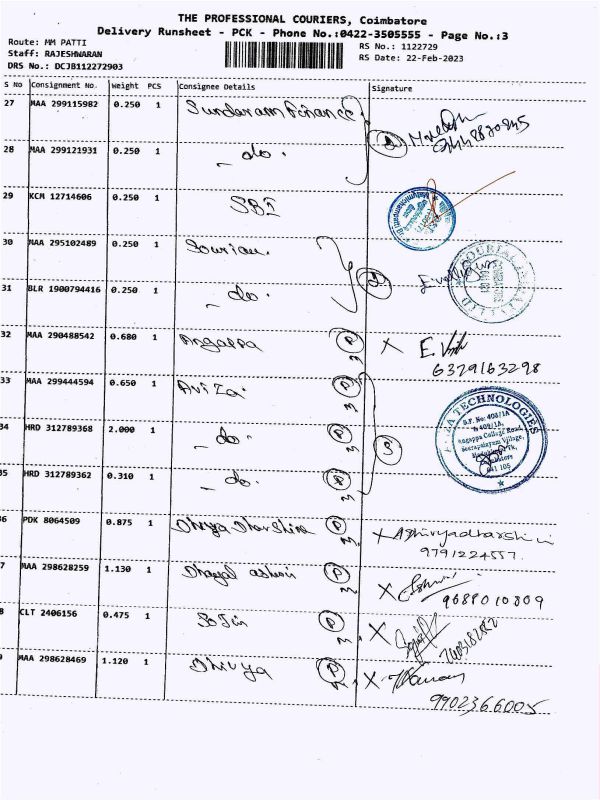 THE PROFESSIONAL COURIERS, Coimbatore
Delivery Runsheet - PCK - Phone No.:0422-3505555 - Page No.:3
Route: MM PATTI
RS No.: 1122729
Staff: RAJESHWARAN
RS Date: 22-Feb-2023
DRS No.: DCJB112272903
S No Consignment No. Weight PCS Consignee Details Signature
27 MAA 299115982 0.250 1 Sundaram finance
28 MAA 299121931 0.250 1 - do.
29 KCM 12714606 0.250 1 SBI
30 MAA 295102489 0.250 1
31 BLR 1900794416 0.250 1 - do.
32 MAA 290488542 0.680 1 Angappa P X
6329163298
33 MAA 299444594 0.650 1 P
34 HRD 312789368 2.000 1 - do. P 3
35 HRD 312789362 0.310 1 - do. P
TECHNOLOGIES
S.F. No: 408/1A,
& 409/1A,
Angappa College Road,
641 105
36 PDK 8064509 0.875 1 Dhivya Dharshini P X
9791224557
37 MAA 298628259 1.130 1 Dhayal ashwin P X
9688010809
38 CLT 2406156 0.475 1 P X
39 MAA 298628469 1.120 1 Dhivya P X
9902366005